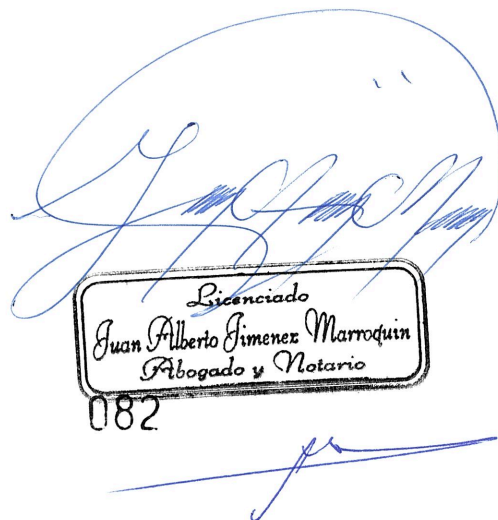 Licenciado
Juan Alberto Jimenez Marroquin
Abogado y Notario
082